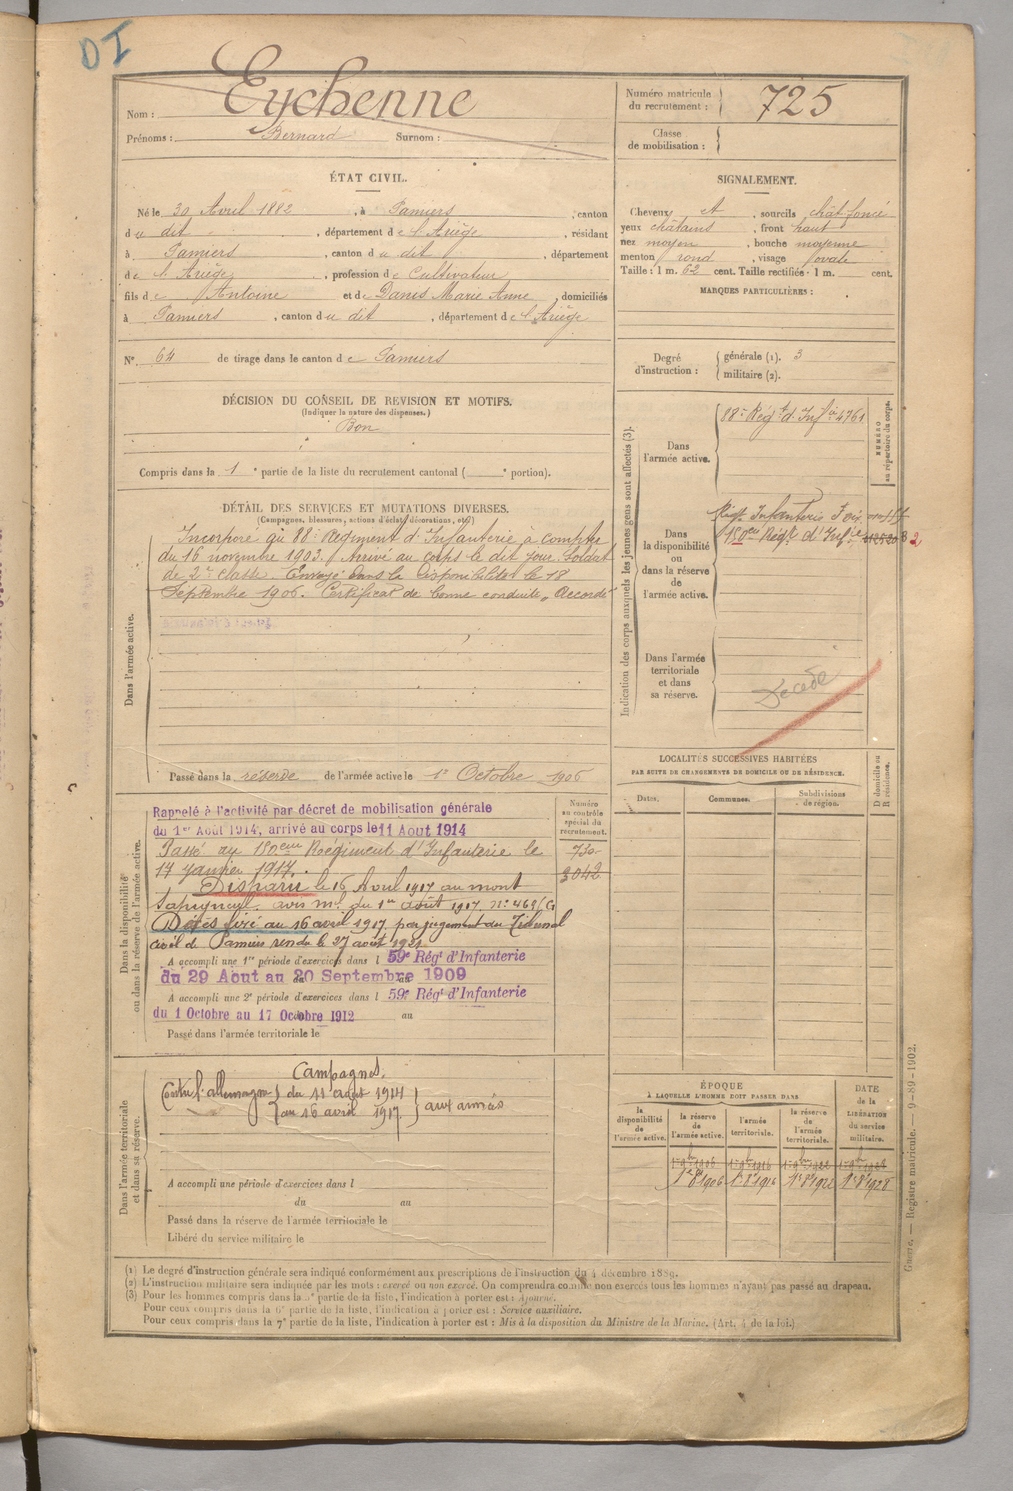 DI
Nom : Eychenne
Prénoms : Bernard Surnom :
Numéro matricule du recrutement : 725
Classe de mobilisation :
ÉTAT CIVIL.
Né le 30 Avril 1882, à Pamiers, canton
du dit, département de l'Ariège, résidant
à Pamiers, canton du dit, département
de l'Ariège, profession de Cultivateur
fils de Antoine et de Danis Marie Anne, domiciliés
à Pamiers, canton du dit, département de l'Ariège
N° 64 de tirage dans le canton de Pamiers
SIGNALEMENT.
Cheveux et, sourcils chât foncé
yeux châtains, front haut
nez moyen, bouche moyenne
menton rond, visage ovale
Taille : 1 m. 62 cent. Taille rectifiée : 1 m. cent.
MARQUES PARTICULIÈRES :
Degré d'instruction : générale (1). 3
militaire (2).
DÉCISION DU CONSEIL DE REVISION ET MOTIFS.
(Indiquer la nature des dispenses.)
Bon
Compris dans la 1e partie de la liste du recrutement cantonal ( e portion).
DÉTAIL DES SERVICES ET MUTATIONS DIVERSES.
(Campagnes, blessures, actions d'éclat, décorations, etc.)
Dans l'armée active.
Incorporé au 88e Régiment d'Infanterie à compter
du 16 novembre 1903. Arrivé au corps le dit jour. Soldat
de 2e classe. Envoyé dans la disponibilité le 18
Septembre 1906. Certificat de bonne conduite „ Accordé
Passé dans la réserve de l'armée active le 1er Octobre 1906
Indication des corps auxquels les jeunes gens sont affectés (3).
NUMÉRO au répertoire du corps.
Dans l'armée active.
88e Régt d'Infie 4761
Dans la disponibilité ou dans la réserve de l'armée active.
Régt Infanterie Foix
150e Régt d'Infie
Dans l'armée territoriale et dans sa réserve.
Décédé
LOCALITÉS SUCCESSIVES HABITÉES
PAR SUITE DE CHANGEMENTS DE DOMICILE OU DE RÉSIDENCE.
D domicile ou R résidence.
Dates. Communes. Subdivisions de région.
Dans la disponibilité ou dans la réserve de l'armée active.
Numéro au contrôle spécial du recrutement.
730
3042
Rappelé à l'activité par décret de mobilisation générale
du 1er Août 1914, arrivé au corps le 11 Août 1914
Passé au 150eme Régiment d'Infanterie le
17 janvier 1917.
Disparu le 16 Avril 1917 au mont
Sapigneul. avis ml du 1er août 1917. n°
Décès fixé au 16 avril 1917 par jugement du Tribunal
civil de Pamiers rendu le 27 août 1921
A accompli une 1re période d'exercices dans l 59e Régt d'Infanterie
du 29 Août au 20 Septembre 1909
A accompli une 2e période d'exercices dans l 59e Régt d'Infanterie
du 1 Octobre au 17 Octobre 1912 au
Passé dans l'armée territoriale le
Dans l'armée territoriale et dans sa réserve.
Campagnes.
Contre l'allemagne du 11 août 1914
au 16 avril 1917. aux armées
A accompli une période d'exercices dans l
du au
Passé dans la réserve de l'armée territoriale le
Libéré du service militaire le
ÉPOQUE
À LAQUELLE L'HOMME DOIT PASSER DANS
la disponibilité de l'armée active.
la réserve de l'armée active.
l'armée territoriale.
la réserve de l'armée territoriale.
DATE de la LIBÉRATION du service militaire.
1er 9bre 1906 1er 9bre 1916 1er 9bre 1922 1er 9bre 1928
1er 8bre 1906 1er 8bre 1916 1er 8bre 1922 1er 8bre 1928
Guerre. — Registre matricule. — 9-89-1902.
(1) Le degré d'instruction générale sera indiqué conformément aux prescriptions de l'instruction du 4 décembre 1889.
(2) L'instruction militaire sera indiquée par les mots : exercé ou non exercé. On comprendra comme non exercés tous les hommes n'ayant pas passé au drapeau.
(3) Pour les hommes compris dans la 5e partie de la liste, l'indication à porter est : Ajourné.
Pour ceux compris dans la 6e partie de la liste, l'indication à porter est : Service auxiliaire.
Pour ceux compris dans la 7e partie de la liste, l'indication à porter est : Mis à la disposition du Ministre de la Marine. (Art. 4 de la loi.)